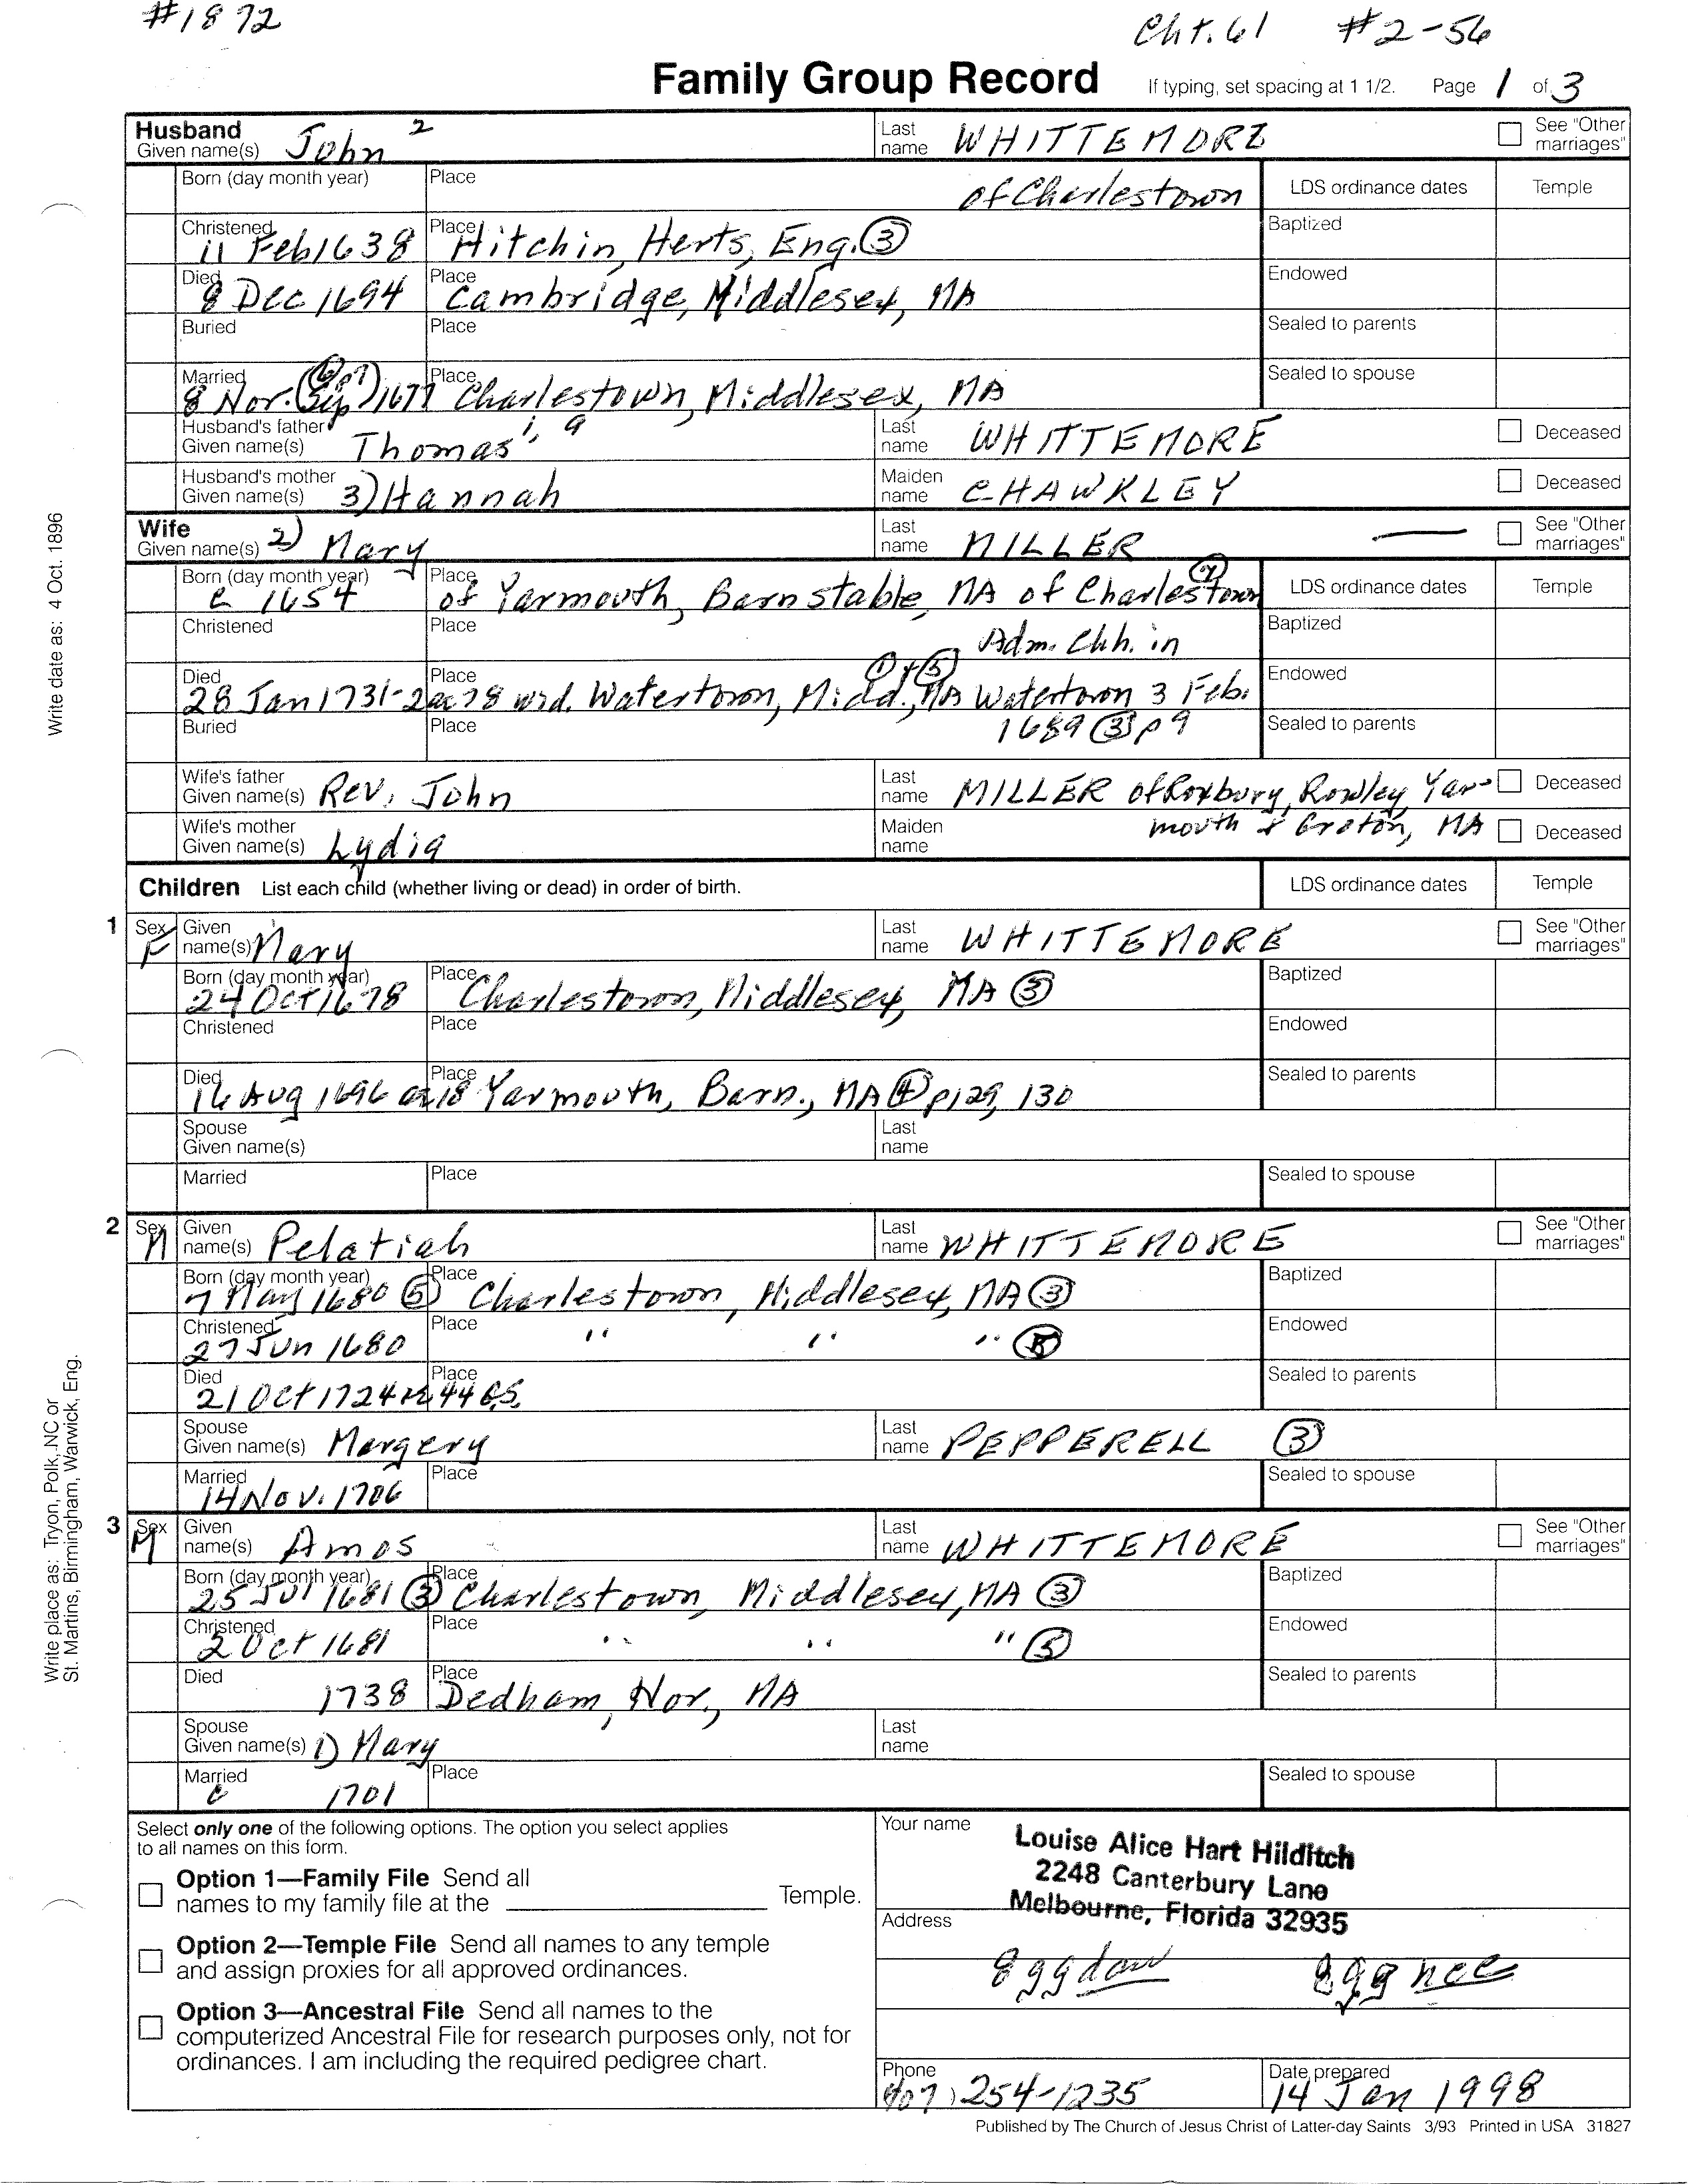 #1872
Cht. 61 #2-56
Family Group Record If typing, set spacing at 1 1/2. Page 1 of 3
Husband
Given name(s) John 2 Last name WHITTEMORE See "Other marriages"
Born (day month year) Place of Charlestown LDS ordinance dates Temple
Christened 11 Feb 1638 Place Hitchin, Herts, Eng. (3) Baptized
Died 8 Dec 1694 Place Cambridge, Middlesex, MA Endowed
Buried Place Sealed to parents
Married 8 Nov. 1677 Place Charlestown, Middlesex, MA Sealed to spouse
Husband's father Given name(s) Thomas 1, 9 Last name WHITTEMORE Deceased
Husband's mother Given name(s) 3) Hannah Maiden name CHAWKLEY Deceased
Wife
Given name(s) 2) Mary Last name MILLER — See "Other marriages"
Born (day month year) c 1654 Place of Yarmouth, Barnstable, MA of Charlestown LDS ordinance dates Temple
Christened Place Adm. Chh. in Baptized
Died 28 Jan 1731-2 ae 78 wid. Place Watertown, Midd., MA (1)+(5) Watertown 3 Feb. Endowed
Buried Place 1689 (3) p 9 Sealed to parents
Wife's father Given name(s) Rev. John Last name MILLER of Roxbury, Rowley, Yar- Deceased
Wife's mother Given name(s) Lydia Maiden name mouth & Groton, MA Deceased
Children List each child (whether living or dead) in order of birth. LDS ordinance dates Temple
1 Sex F Given name(s) Mary Last name WHITTEMORE See "Other marriages"
Born (day month year) 24 Oct 1678 Place Charlestown, Middlesex, MA (3) Baptized
Christened Place Endowed
Died 16 Aug 1696 ae 18 Place Yarmouth, Barn., MA (4) p129, 130 Sealed to parents
Spouse Given name(s) Last name
Married Place Sealed to spouse
2 Sex M Given name(s) Pelatiah Last name WHITTEMORE See "Other marriages"
Born (day month year) 7 May 1680 (5) Place Charlestown, Middlesex, MA (3) Baptized
Christened 27 Jun 1680 Place " " " (5) Endowed
Died 21 Oct 1724 ae 44 G.S. Place Sealed to parents
Spouse Given name(s) Margery Last name PEPPERELL (3)
Married 14 Nov. 1706 Place Sealed to spouse
3 Sex M Given name(s) Amos Last name WHITTEMORE See "Other marriages"
Born (day month year) 25 Jul 1681 (3) Place Charlestown, Middlesex, MA (3) Baptized
Christened 2 Oct 1681 Place " " " (5) Endowed
Died 1738 Place Dedham, Nor., MA Sealed to parents
Spouse Given name(s) 1) Mary Last name
Married c 1701 Place Sealed to spouse
Select only one of the following options. The option you select applies
to all names on this form.
Option 1—Family File Send all
names to my family file at the Temple.
Option 2—Temple File Send all names to any temple
and assign proxies for all approved ordinances.
Option 3—Ancestral File Send all names to the
computerized Ancestral File for research purposes only, not for
ordinances. I am including the required pedigree chart.
Your name Louise Alice Hart Hilditch
2248 Canterbury Lane
Address Melbourne, Florida 32935
8ggdau 8ggnce
Phone 407) 254-1235 Date prepared 14 Jan 1998
Published by The Church of Jesus Christ of Latter-day Saints 3/93 Printed in USA 31827
Write date as: 4 Oct. 1896
Write place as: Tryon, Polk, NC or
St. Martins, Birmingham, Warwick, Eng.